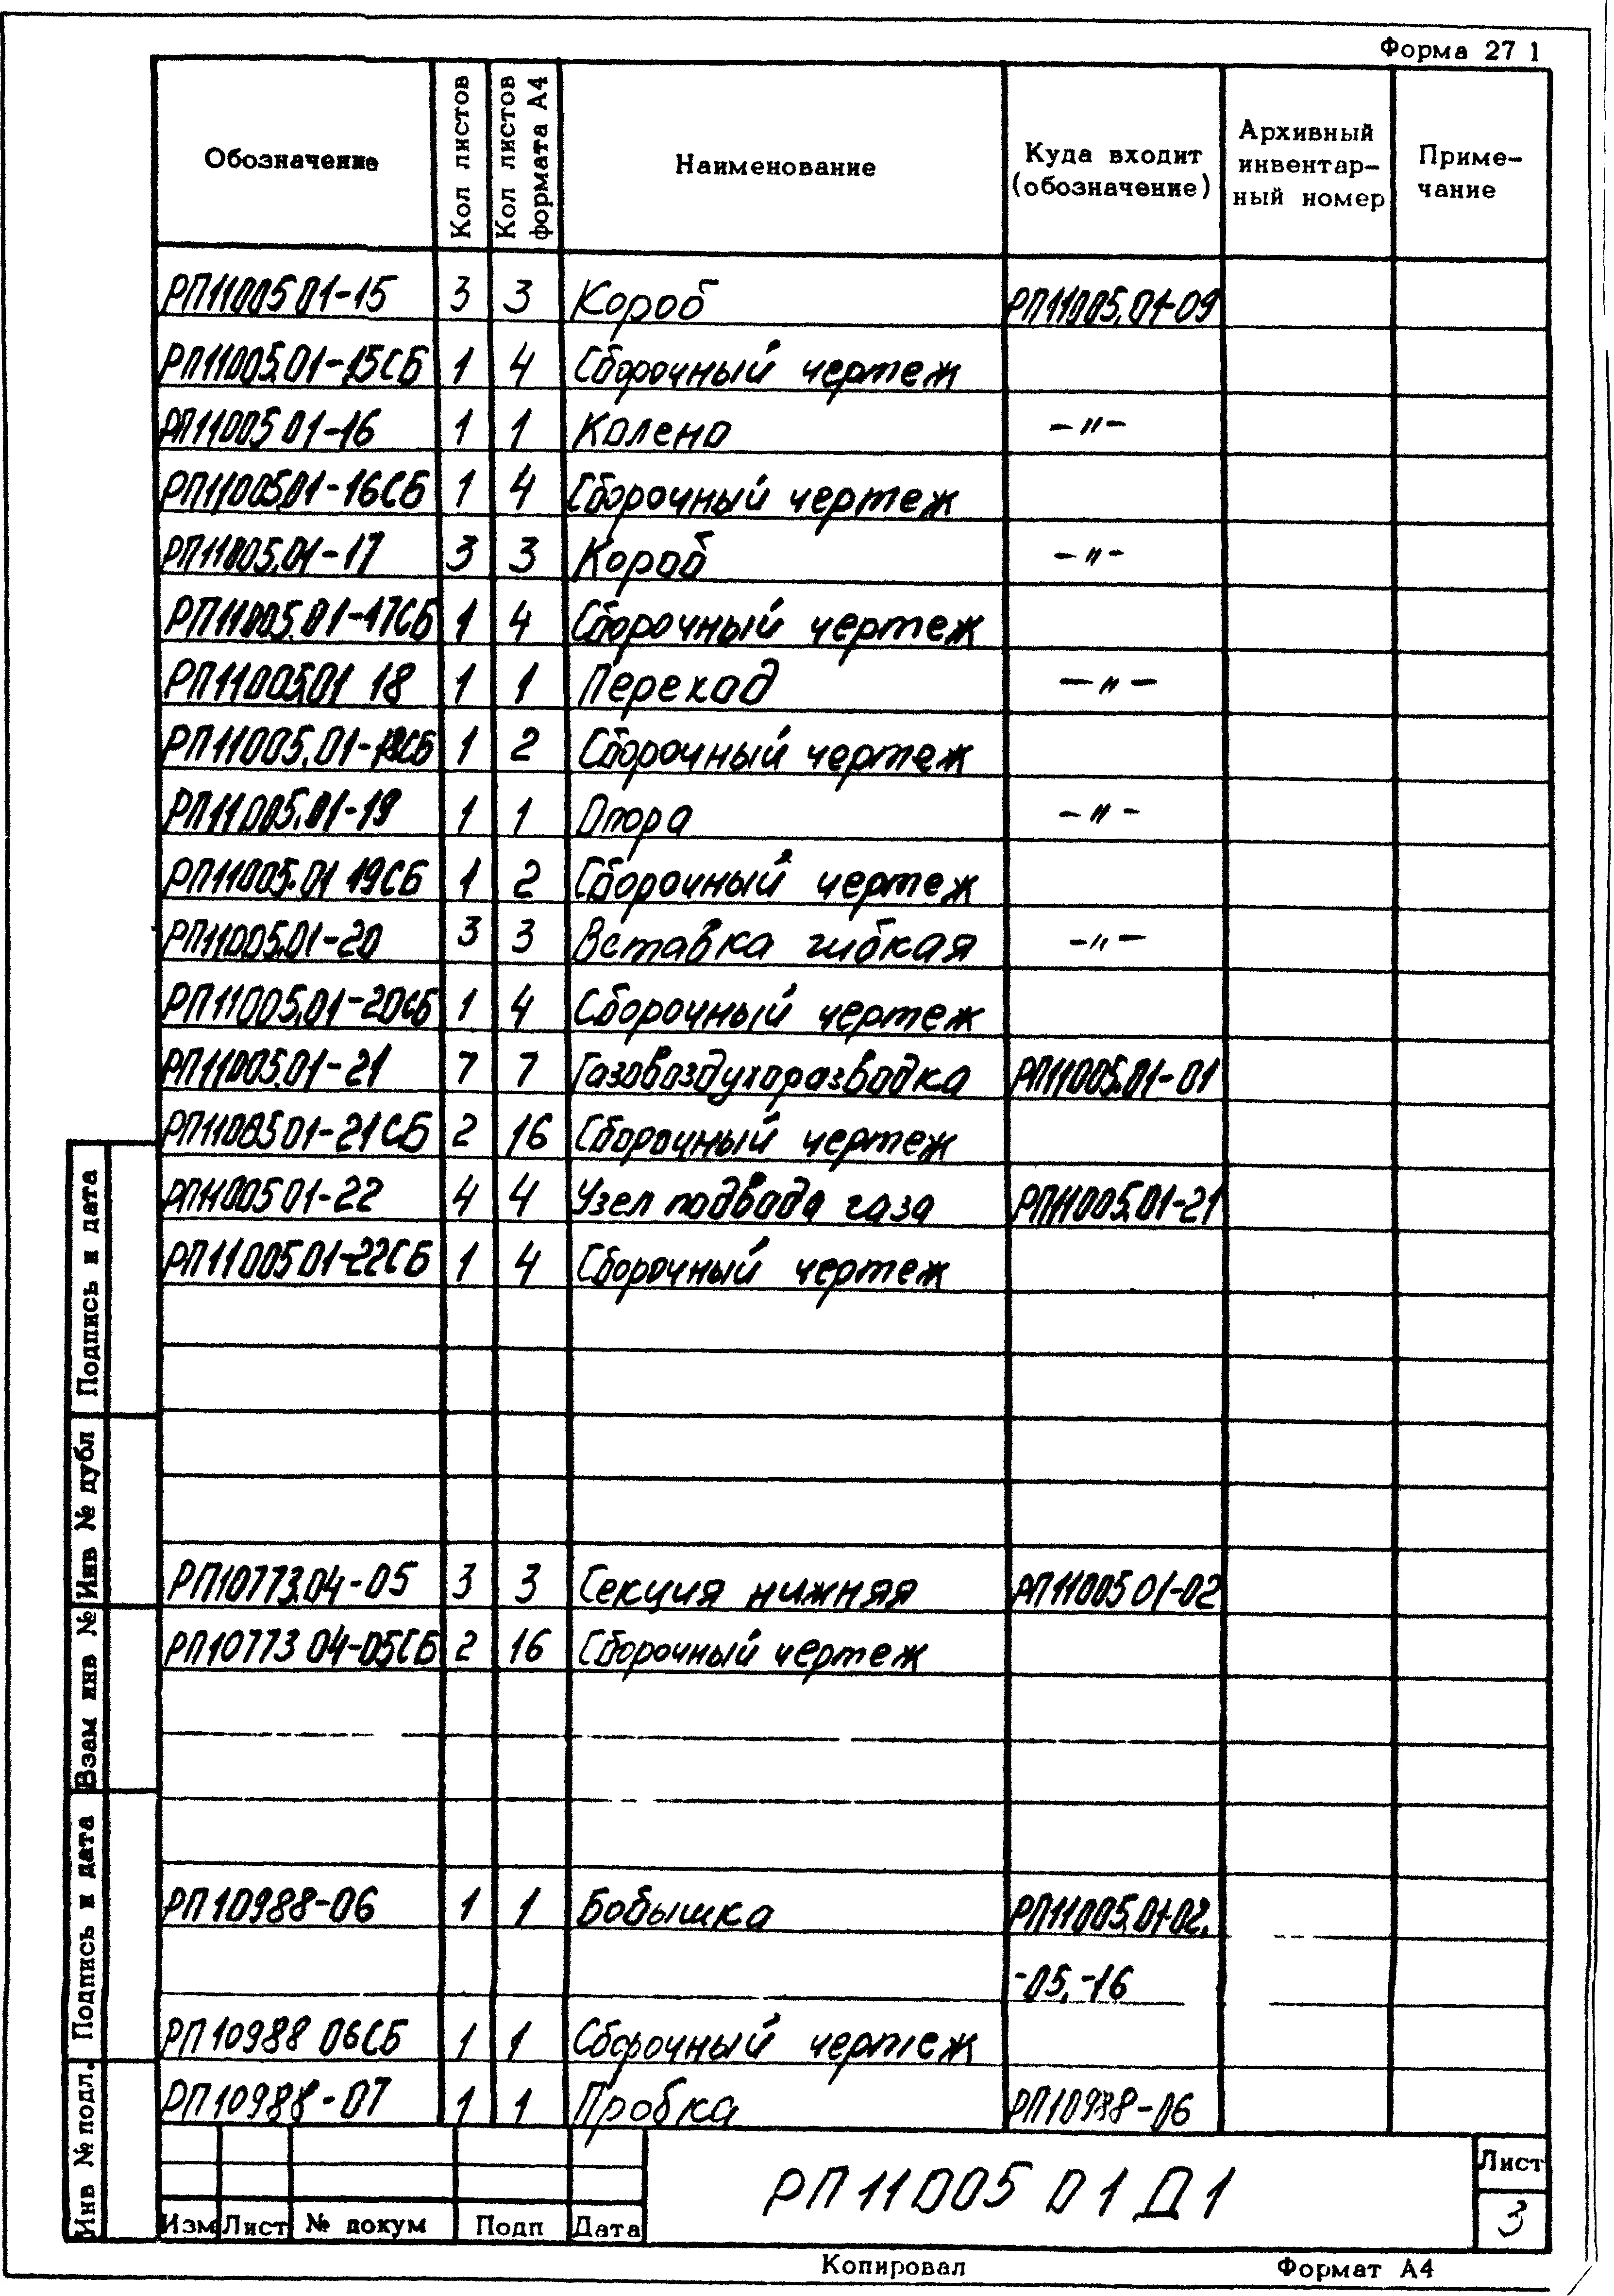 Форма 27 1
Обозначение Кол листов Кол листов формата А4 Наименование Куда входит (обозначение) Архивный инвентар- ный номер Приме- чание
РП11005 01-15 3 3 Короб РП11005.01-09
РП11005.01-15СБ 1 4 Сборочный чертеж
РП11005 01-16 1 1 Колено -"-
РП11005.01-16СБ 1 4 Сборочный чертеж
РП11005.01-17 3 3 Короб -"-
РП11005.01-17СБ 1 4 Сборочный чертеж
РП11005.01 18 1 1 Переход -"-
РП11005.01-18СБ 1 2 Сборочный чертеж
РП11005.01-19 1 1 Опора -"-
РП11005.01 19СБ 1 2 Сборочный чертеж
РП11005.01-20 3 3 Вставка гибкая -"-
РП11005.01-20СБ 1 4 Сборочный чертеж
РП11005.01-21 7 7 Газовоздухоразводка РП11005.01-01
РП11005 01-21СБ 2 16 Сборочный чертеж
РП11005 01-22 4 4 Узел подвода газа РП11005.01-21
РП11005 01-22СБ 1 4 Сборочный чертеж
РП10773.04-05 3 3 Секция нижняя РП11005 01-02
РП10773 04-05СБ 2 16 Сборочный чертеж
РП10988-06 1 1 Бобышка РП11005.01-02,
-05,-16
РП10988 06СБ 1 1 Сборочный чертеж
РП10988-07 1 1 Пробка РП10988-06
Подпись и дата
Инв № дубл
Взам инв №
Подпись и дата
Инв № подл.
Изм Лист № докум Подп Дата
РП11005 01 Д1
Лист
3
Копировал Формат А4